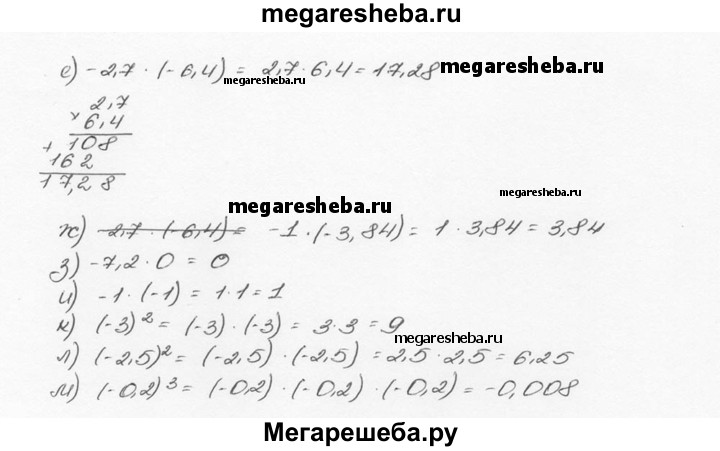 megaresheba.ru
е) -2,7 · (-6,4) = 2,7 · 6,4 = 17,28 megaresheba.ru
megaresheba.ru
2,7
× 6,4
+ 108
162
17,28
megaresheba.ru
megaresheba.ru
ж) -2,7 · (-6,4) = -1 · (-3,84) = 1 · 3,84 = 3,84
з) -7,2 · 0 = 0
и) -1 · (-1) = 1·1 = 1
к) (-3)² = (-3) · (-3) = 3·3 = 9
megaresheba.ru
л) (-2,5)² = (-2,5) · (-2,5) = 2,5 · 2,5 = 6,25
м) (-0,2)³ = (-0,2) · (-0,2) · (-0,2) = -0,008
megaresheba.ru
Мегарешеба.ру